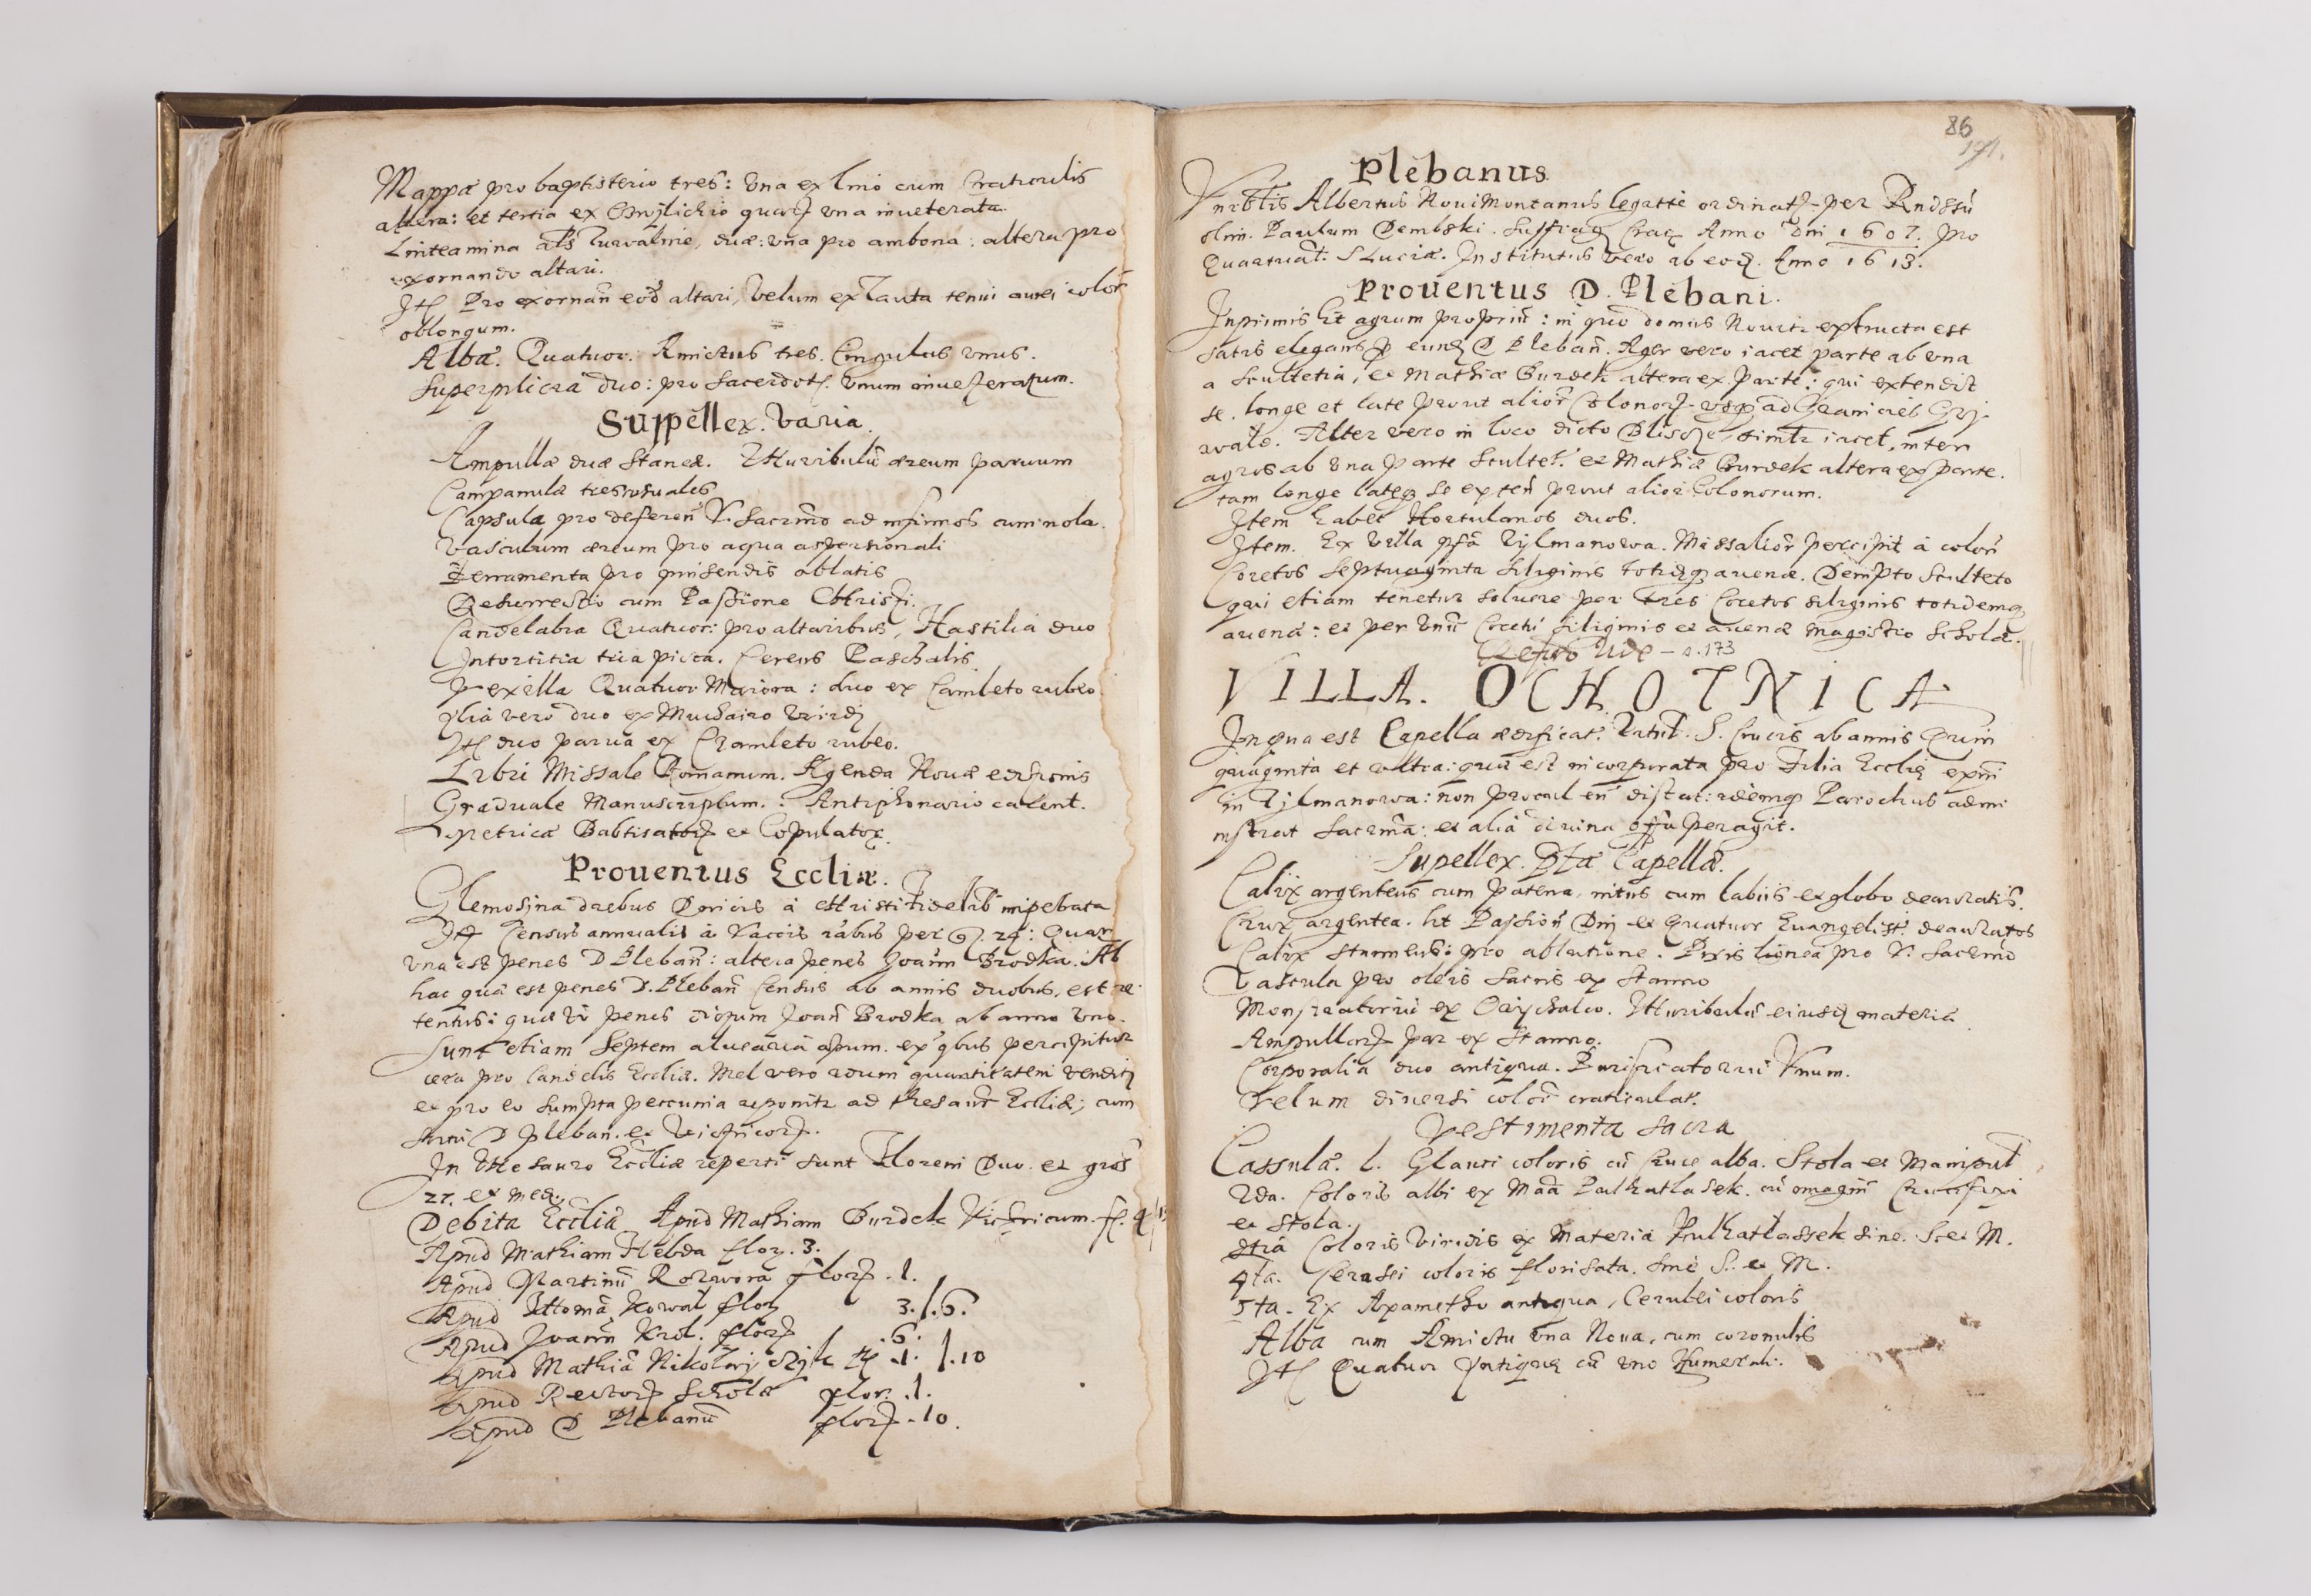 Mappæ pro baptisterio tres: Vna ex lino cum Craticulis
altera: et tertia ex quarꝫ vna inueterata.
Linteamina als Tuualnie, duæ: vna pro ambona: altera pro
exornando altari.
Itꝫ Pro exornan̄ eod̄ altari, Velum ex Tauta tenui aurei color̄
oblongum.
Albæ. Quatuor. Amictus tres. Cingulus vnus.
Superplicia duo: pro Sacerdotꝫ. Vnum inueteratum.
Suppellex. Varia.
Ampullæ duæ Staneæ. Thuribulū æreum paruum
Campanulæ tres usuales
Capsula pro deferen̄ V. Sacrm̄o ad infirmos cum nola.
Vasculum æreum pro aqua aspersionali
Ferramenta pro pinsendis oblatis
Resurrectio cum Passione Christi.
Candelabra Quatuor: pro altaribus, Hastilia duo
Intortitia tria picta. Cereus Paschalis.
Vexilla Quatuor Maiora: duo ex Camleto rubeo
Alia vero duo ex Muchairo Viridj
Itꝫ duo parua ex Czamleto rubeo.
Libri Missale Romanum. Agenda Nouæ editionis
Graduale Manuscriptum. Antiphonario carent.
Metricæ Babtisatorꝫ et Copulatorꝫ.
Prouentus Eccliæ.
Elemosina diebus Dnicis à Christifidelib' impetrata
Itꝫ Census annualis à Vaccis ꝫ. 24: Quarꝫ
vna est penes D Pleban̄: altera penes Joan̄ Brodka. Ab
hac quæ est penes D. Pleban̄ Census ab annis duobus, est re
tentus: quæ vō penes dictum Joan̄ Brodka ab anno vno.
Sunt etiam Septem aluearia apum. ex qbus percipitur
cera pro Candelis Eccliæ. Mel vero quantitatem venditꝫ
et pro eo sumpta peccunia reponitr ad thesaur̄ Eccliæ; cum
scitu D Pleban. et Victricorꝫ.
In Thesauro Eccliæ reperti sunt Floreni Duo. et gros
27. et med.
Debita Eccliæ Apud Mathiam Burdek Victricum. fl. 4
Apud Mathiam Hebda flor. 3.
Apud Martinū florꝫ. 1.
Apud Thomā Kowal flor 3./.6.
Apud Joan̄n Krol. florꝫ .6.
Apud Mathiā .1. /.10
Apud Rectorꝫ Scholæ flor. .1.
Apud D Plebanū florꝫ. 10.
86
171.
Plebanus
Vnrblis Albertus Nouimontanus legittè ordinatꝫ per Rndssū
olim. Paulum Dembski. Suffrag Crac Anno Dni 1607. pro
Quartuat: S Luciæ. Institutus vero ab eodꝫ. Anno 1613.
Prouentus D. Plebani.
Inprimis hēt agrum propriū: in quo domus Nouitr extructa est
satis elegans ꝑ eundꝫ D Pleban̄. Ager vero iacet parte ab vna
a Scultetia, et Mathiæ Burdek altera ex parte: qui extendit
se. longe et late prout alior̄ Colonorꝫ usqꝫ ad Granicies
Alter vero in loco dicto simltr iacet, inter
agros ab vna parte Scultet. et Mathiæ Burdek altera ex parte.
tam longe lateqꝫ se exten̄ prout alior̄ Colonorum.
Item habet Hortulanos duos.
Item. Ex Villa Tylmanowa. Missalior̄ percipit à colon̄
Coretos Septuaginta siliginis totidqꝫ auenæ. Dempto Sculteto
qui etiam tenetur soluere per Tres Coretos siliginis totidemqꝫ
auenæ: et per vnū Coretū siliginis et auenæ magistro Scholæ.
Vide – s. 173
VILLA. OCHOTNICA
In qua est Capella ædificat. Titul. S. Crucis ab annis Quin
quaginta et vltra: quæ est incorporata pro Filia Eccliæ
in Tylmanowa: non procul en̄ distat: idemqꝫ Parochus admi
nistrat Sacrm̄a: et alia diuina offa peragit.
Supellex. Capellæ.
Calix argenteus cum patena, intus cum labiis et globo deauratis.
Crux argentea. hēt Passion̄ Dnj et Quatuor Euangelist. deauratos
Calix stanneus: pro ablutione. Pixis lignea pro V. Sacrmo
Vascula pro oleis sacris ex stanno
Monstratoriū ex Orichalco. Thuribulū eiusdꝫ materiæ
Ampullorꝫ par ex Stanno.
Corporalia duo antiqua. Purificatoriū Vnum.
Velum diuersi color̄ craticulat.
Vestimenta sacra
Cassula. 1. Glauci coloris cū Cruce alba. Stola et Manipul
2da. Coloris albi ex Maā Pułhatłasek. cū imagin̄ Crucifixi
et Stola.
3tia Coloris Viridis ex Materia Pułhatłassek sine. S. et M.
4ta. Cerasei coloris florisata. sine S. et M.
5ta. Ex Axametho antiqua, Cerulei coloris
Alba cum Amictu vna Noua, cum coronulis
Itꝫ Quatuor Antiquæ cū vno Humerali.